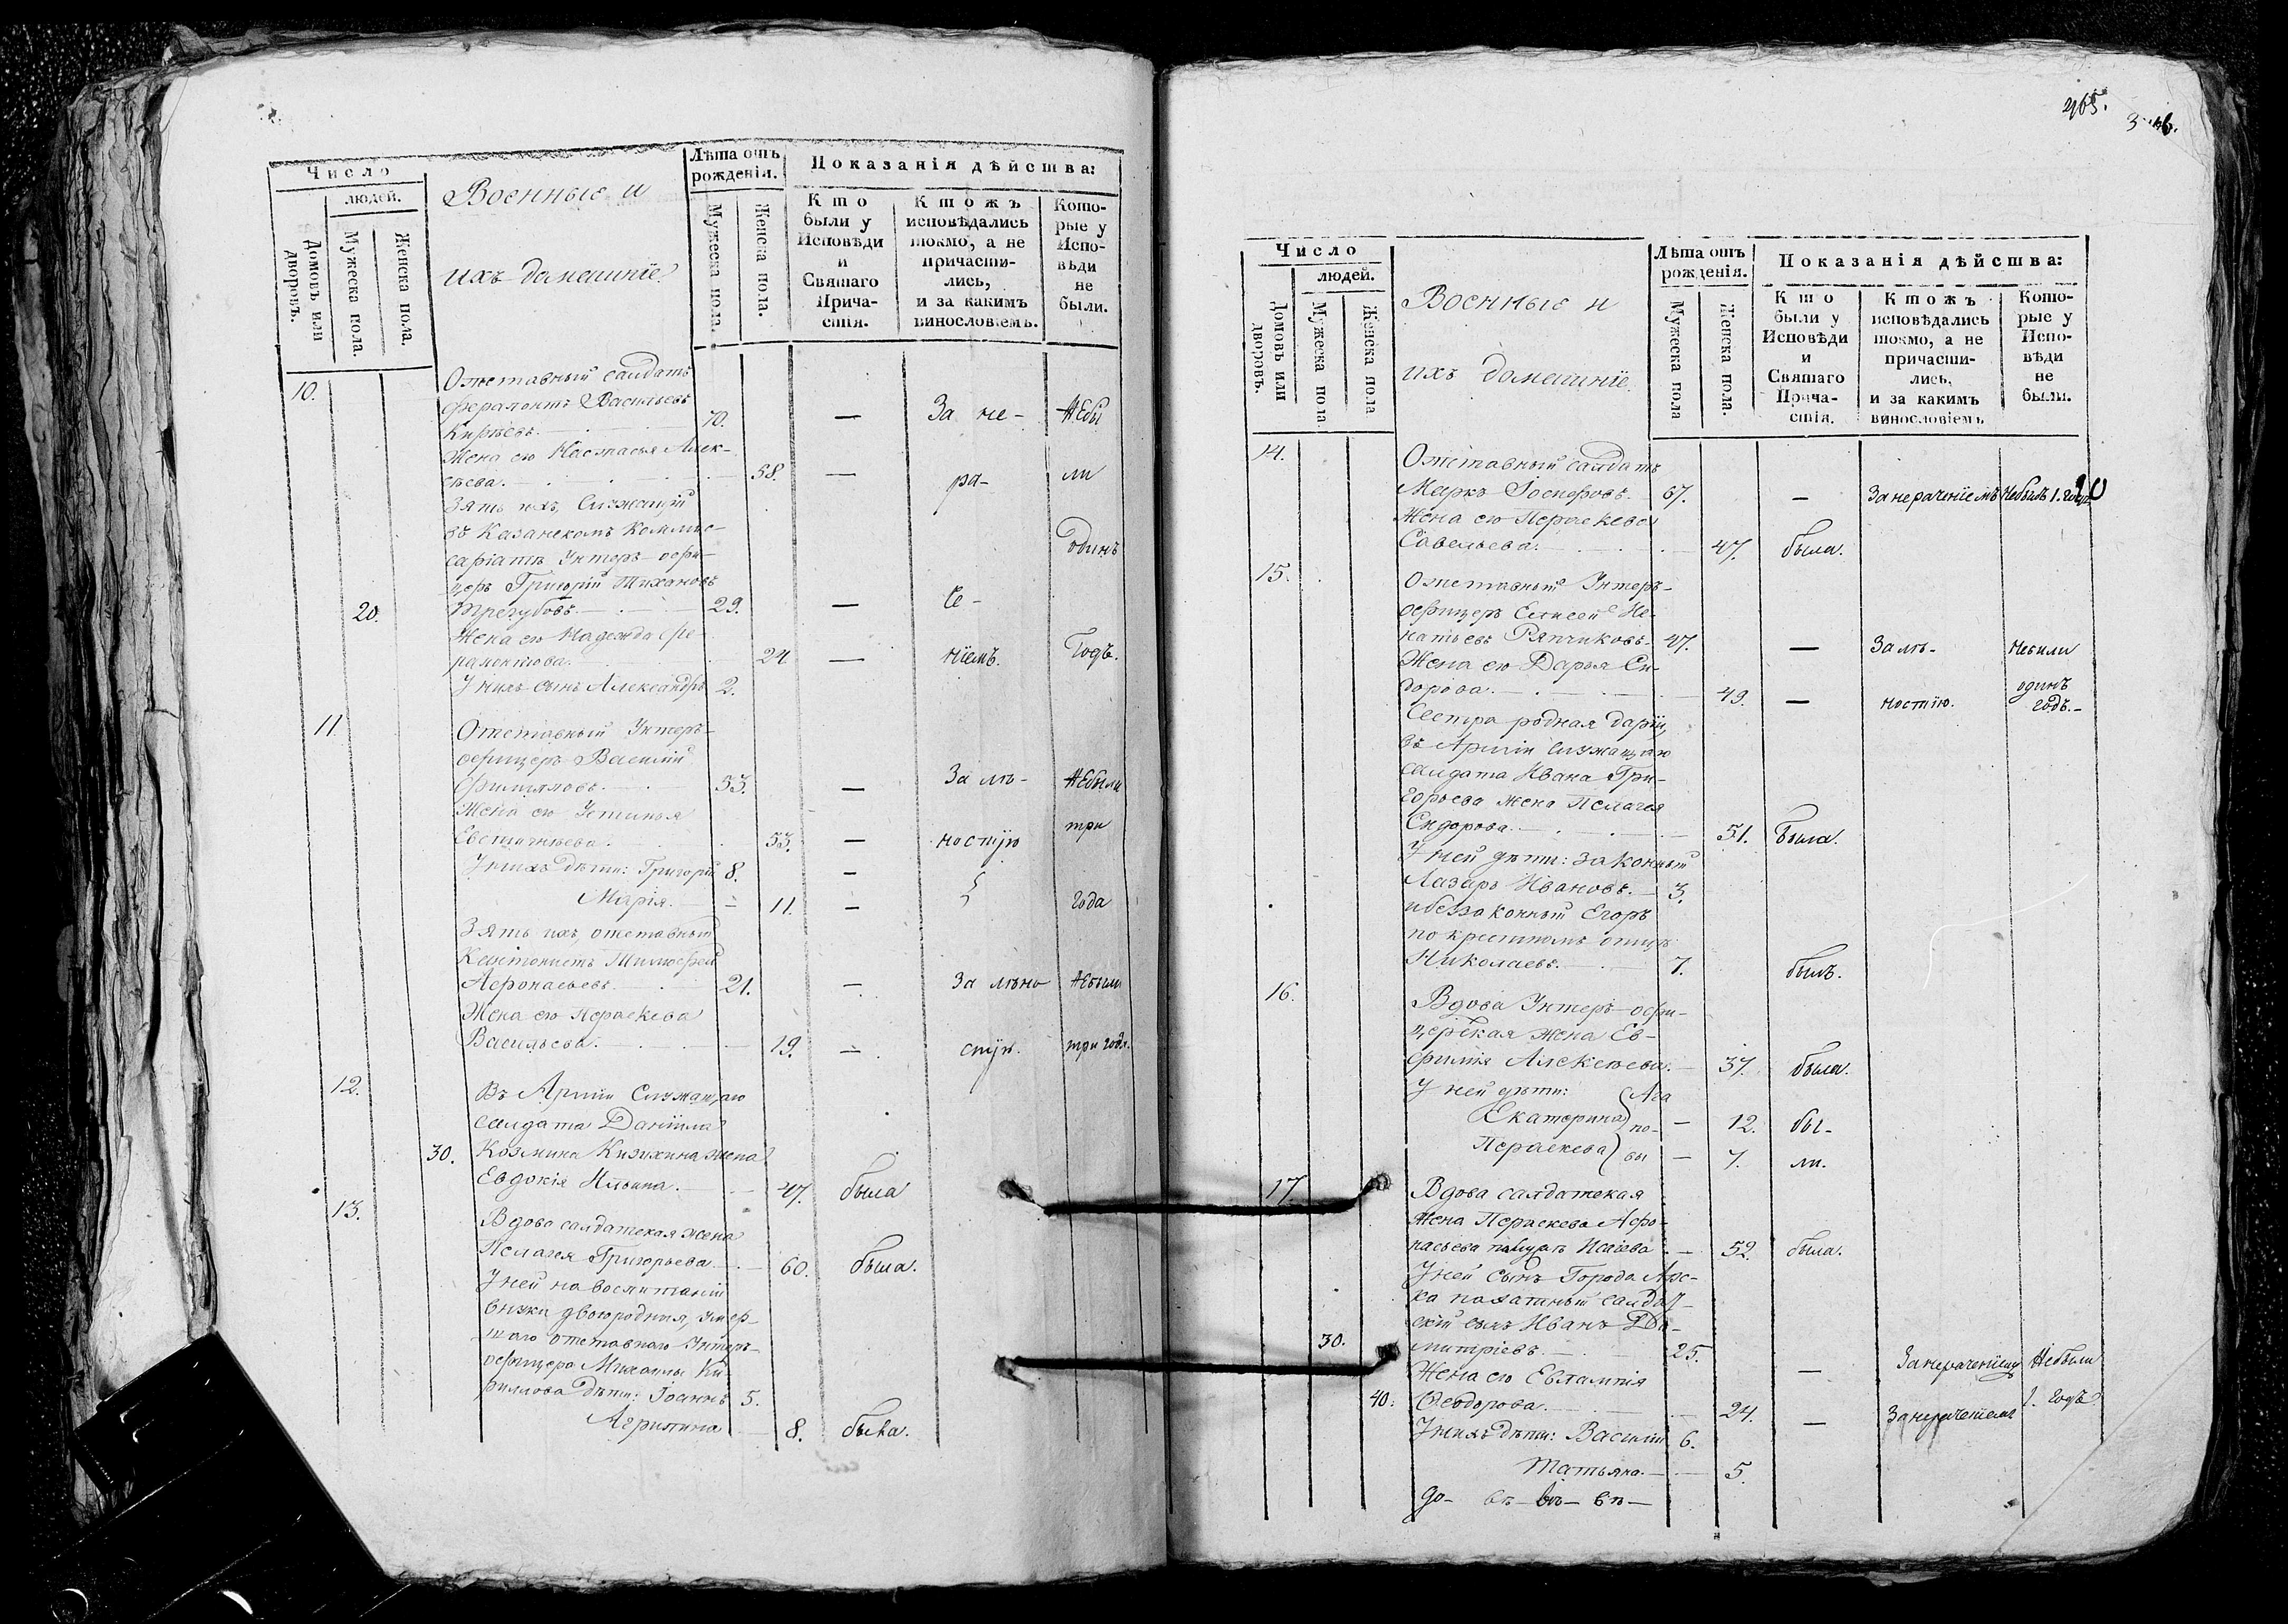 Число
людей.
Домовъ или дворовъ.
Мужеска пола.
Женска пола.
Военные и
ихъ домашніе
Лѣта отъ
рожденія.
Мужеска пола.
Женска пола.
Показанія дѣйства:
Кто
были у
Исповѣди
и
Святаго
Прича-
стія.
Ктожъ
исповѣдались
токмо, а не
причасти-
лись,
и за какимъ
винословіемъ.
Кото-
рые у
Испо-
вѣди
не
были.
10. Отставный салдатъ
Ферапонтъ Васильевъ
Кирѣевъ. 70. — За не- Небы
Жена его Настасья Алек-
сѣева. 58. — ра- ли
Зять ихъ, Служащій
въ Казанскомъ Коммис-
саріатѣ Унтеръ-офи- одинъ
церъ Григорій Тихановъ
20. Трегубовъ. 29. — че-
Жена его Надежда Фе-
рапонтова. 24 — ніемъ. Годъ.
У нихъ сынъ Александръ 2.
11. Отставный Унтеръ-
офицеръ Василій
Филипповъ. 53. — За лѣ- Небыли
Жена его Устинья
Евстигнѣева. 53. — ностію три
У нихъ дѣти: Григорій 8. —
Марія. — 11. — года
Зять ихъ, отставный
Кантонистъ Тимофей
Афонасьевъ 21. — За лѣно Небыли
Жена его Параскева
Васильева. — 19. — стію. три года.
12. Въ Арміи Служащаго
салдата Даніила
30. Козмина Кизихина жена
Евдокія Ильина. — 47. была
13. Вдова салдатская жена
Пелагея Григорьева. — 60. была.
У ней на воспитаніи
внуки двоюродныя, умер-
шаго отставнаго Унтеръ-
офицера Михаилы Ки-
риллова дѣти: Іоаннъ 5.
Агрипина — 8. была.
465.
3
Число
людей.
Домовъ или дворовъ.
Мужеска пола
Женска пола
Военные и
ихъ домашніе
Лѣта отъ
рожденія.
Мужеска пола
Женска пола.
Показанія дѣйства:
Кто
были у
Исповѣди
и
Святаго
Прича-
стія.
Ктожъ
исповѣдались
токмо, а не
причасти-
лись,
и за какимъ
винословіемъ
Кото-
рые у
Испо-
вѣди
не
были.
14. Отставный салдатъ
Маркъ Іосифовъ. 67. — За нераченіемъ Небылъ 1. годъ
Жена его Параскева
Савельева. — 47. была.
15. Отставный Унтеръ-
офицеръ Елисей Иг-
натьевъ Ряпчиковъ. 47. — За лѣ- Небыли
Жена его Дарья Си-
дорова. — 49. — ностію. одинъ годъ. —
Сестра родная Дарьи,
въ Арміи служащаго
салдата Ивана Гри-
горьева жена Пелагея
Сидорова. — 51. Была.
У ней дѣти: законный
Лазарь Ивановъ. — 3.
и беззаконный Егоръ
по крестномъ отцѣ
Николаевъ. 7. былъ.
16. Вдова Унтеръ-офи-
церская жена Ев-
фимія Алексѣева. — 37. была.
У ней дѣти: Ага
Екатерина по- — 12. бы-
Параскева вы — 7. ли.
17. Вдова салдатская
жена Параскева Афо-
насьева Исаева — 52. была.
У ней сынъ Города Арс-
ка салдат-
скій сынъ Иванъ Ди-
30. митріевъ. 25. — За нераченіемъ Небыли
Жена его Евлампія
40. Ѳеодорова. — 24. — За нераченіемъ 1. годъ
У нихъ дѣти: Василій 6.
Татьяна. — 5.